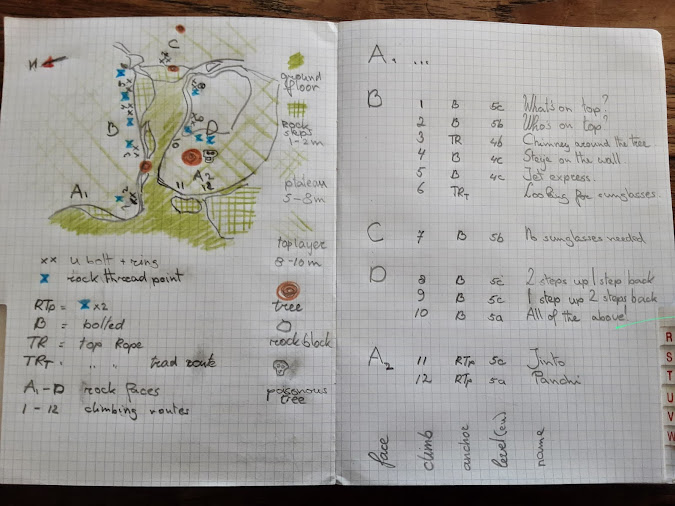 N
C
B
D
A1
A2
10
11
12
ground floor
Rock steps 1-2m
plateau 5-8m
top layer 8-10m
tree
rock block
poisonous tree
xx u bolt + ring
rock thread point
RTp = x2
B = bolted
TR = top Rope
TRT " " trad route
A1-D rock faces
1-12 climbing routes
A1 ...
B 1 B 5c What's on top?
2 B 5b Who's on top?
3 TR 4b Chimney around the tree
4 B 4c on the wall
5 B 4c Jet express
6 TRT Looking for sunglasses
C 7 B 5b No sunglasses needed
D 8 B 5c 2 steps up 1 step back
9 B 5c 1 step up 2 steps back
10 B 5a All of the above!
A2 11 RTp 5c Jinto
12 RTp 5a Panchi
face climb anchor level (eu) name
R
S
T
U
V
W